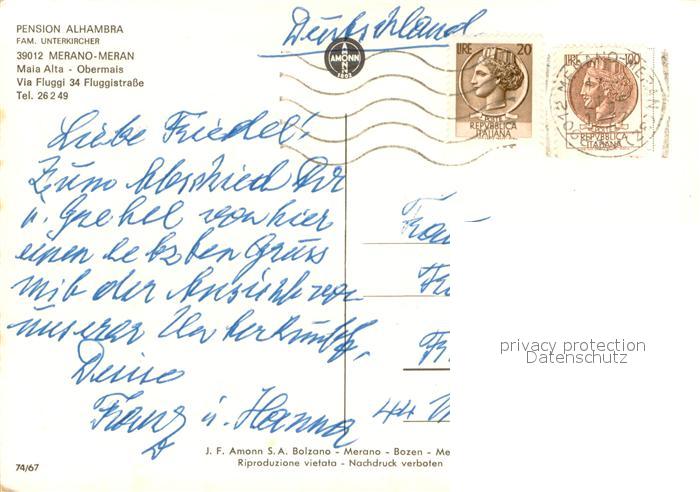 PENSION ALHAMBRA
FAM. UNTERKIRCHER
39012 MERANO-MERAN
Maia Alta - Obermais
Via Fluggi 34 Fluggistraße
Tel. 26 2 49
Deutschland
AMONN
LIRE 20
POSTE
REPVBBLICA
ITALIANA
LIRE 100
REPVBBLICA
ITALIANA
Liebe Friedel!
Zum Abschied Dir
u. Grethel von hier
einen letzten Gruss
mit der Ansicht von
unserer Unterkunft,
Deine
Franz u. Hanna
Frau
Fr
44
privacy protection
Datenschutz
J. F. Amonn S.A. Bolzano - Merano - Bozen - Me
Riproduzione vietata - Nachdruck verboten
74/67